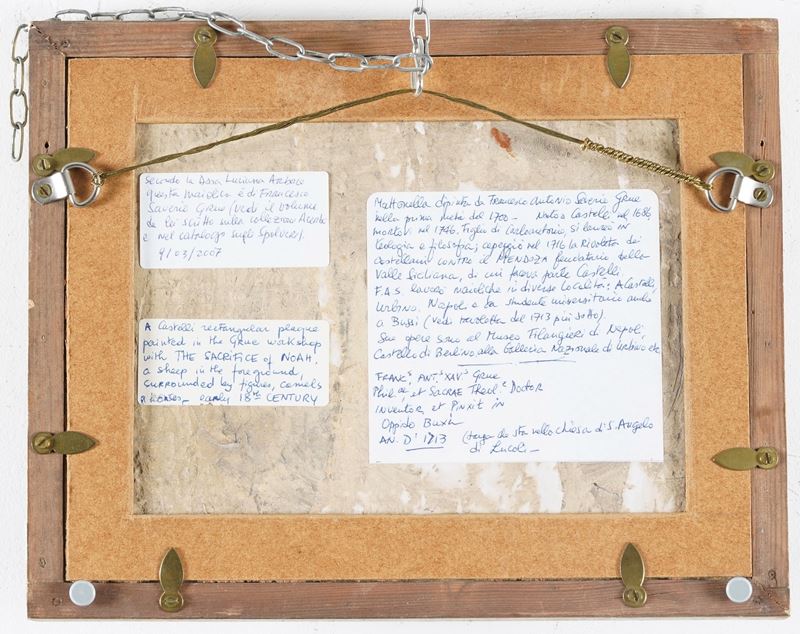 Secondo la Dssa Luciana Arbace
questa maiolica è di Francesco
Saverio Grue (vedi il volume
da lei scritto sulla collezione Acerbo
e nel catalogo sugli Spolveri).
9/03/2007
A Castelli rectangular plaque
painted in the Grue workshop
with THE SACRIFICE of NOAH.
a sheep in the foreground,
surrounded by figures, camels
horses_ early 18TH CENTURY
Mattonella dipinta da Francesco Antonio Saverio Grue
nella prima metà del 1700 - Nato a Castelli nel 1686
morto nel 1746. Figlio di Carlantonio si laureò IN
teologia e filosofia; capeggiò nel 1716 la Rivolta dei
castellani contro il MENDOZA feudatario della
Valle Siciliana, di cui faceva parte Castelli
F.A.S. lavorò maioliche in diverse località: A Castelli,
Urbino, Napoli e da studente universitario anche
a Bussi (vedi tavoletta del 1713 più sotto).
Sue opere sono al Museo Filangieri di Napoli,
Castello di Berlino alla Galleria Nazionale di Urbino etc
FRANCS ANTS XAVS Grue
Phil ae et SACRAE Theol Doctor
Inventor et Pinxit in
Oppido Buxi
AN. D' 1713 (targa che sta nella chiesa di S. Angelo
di Lucoli_